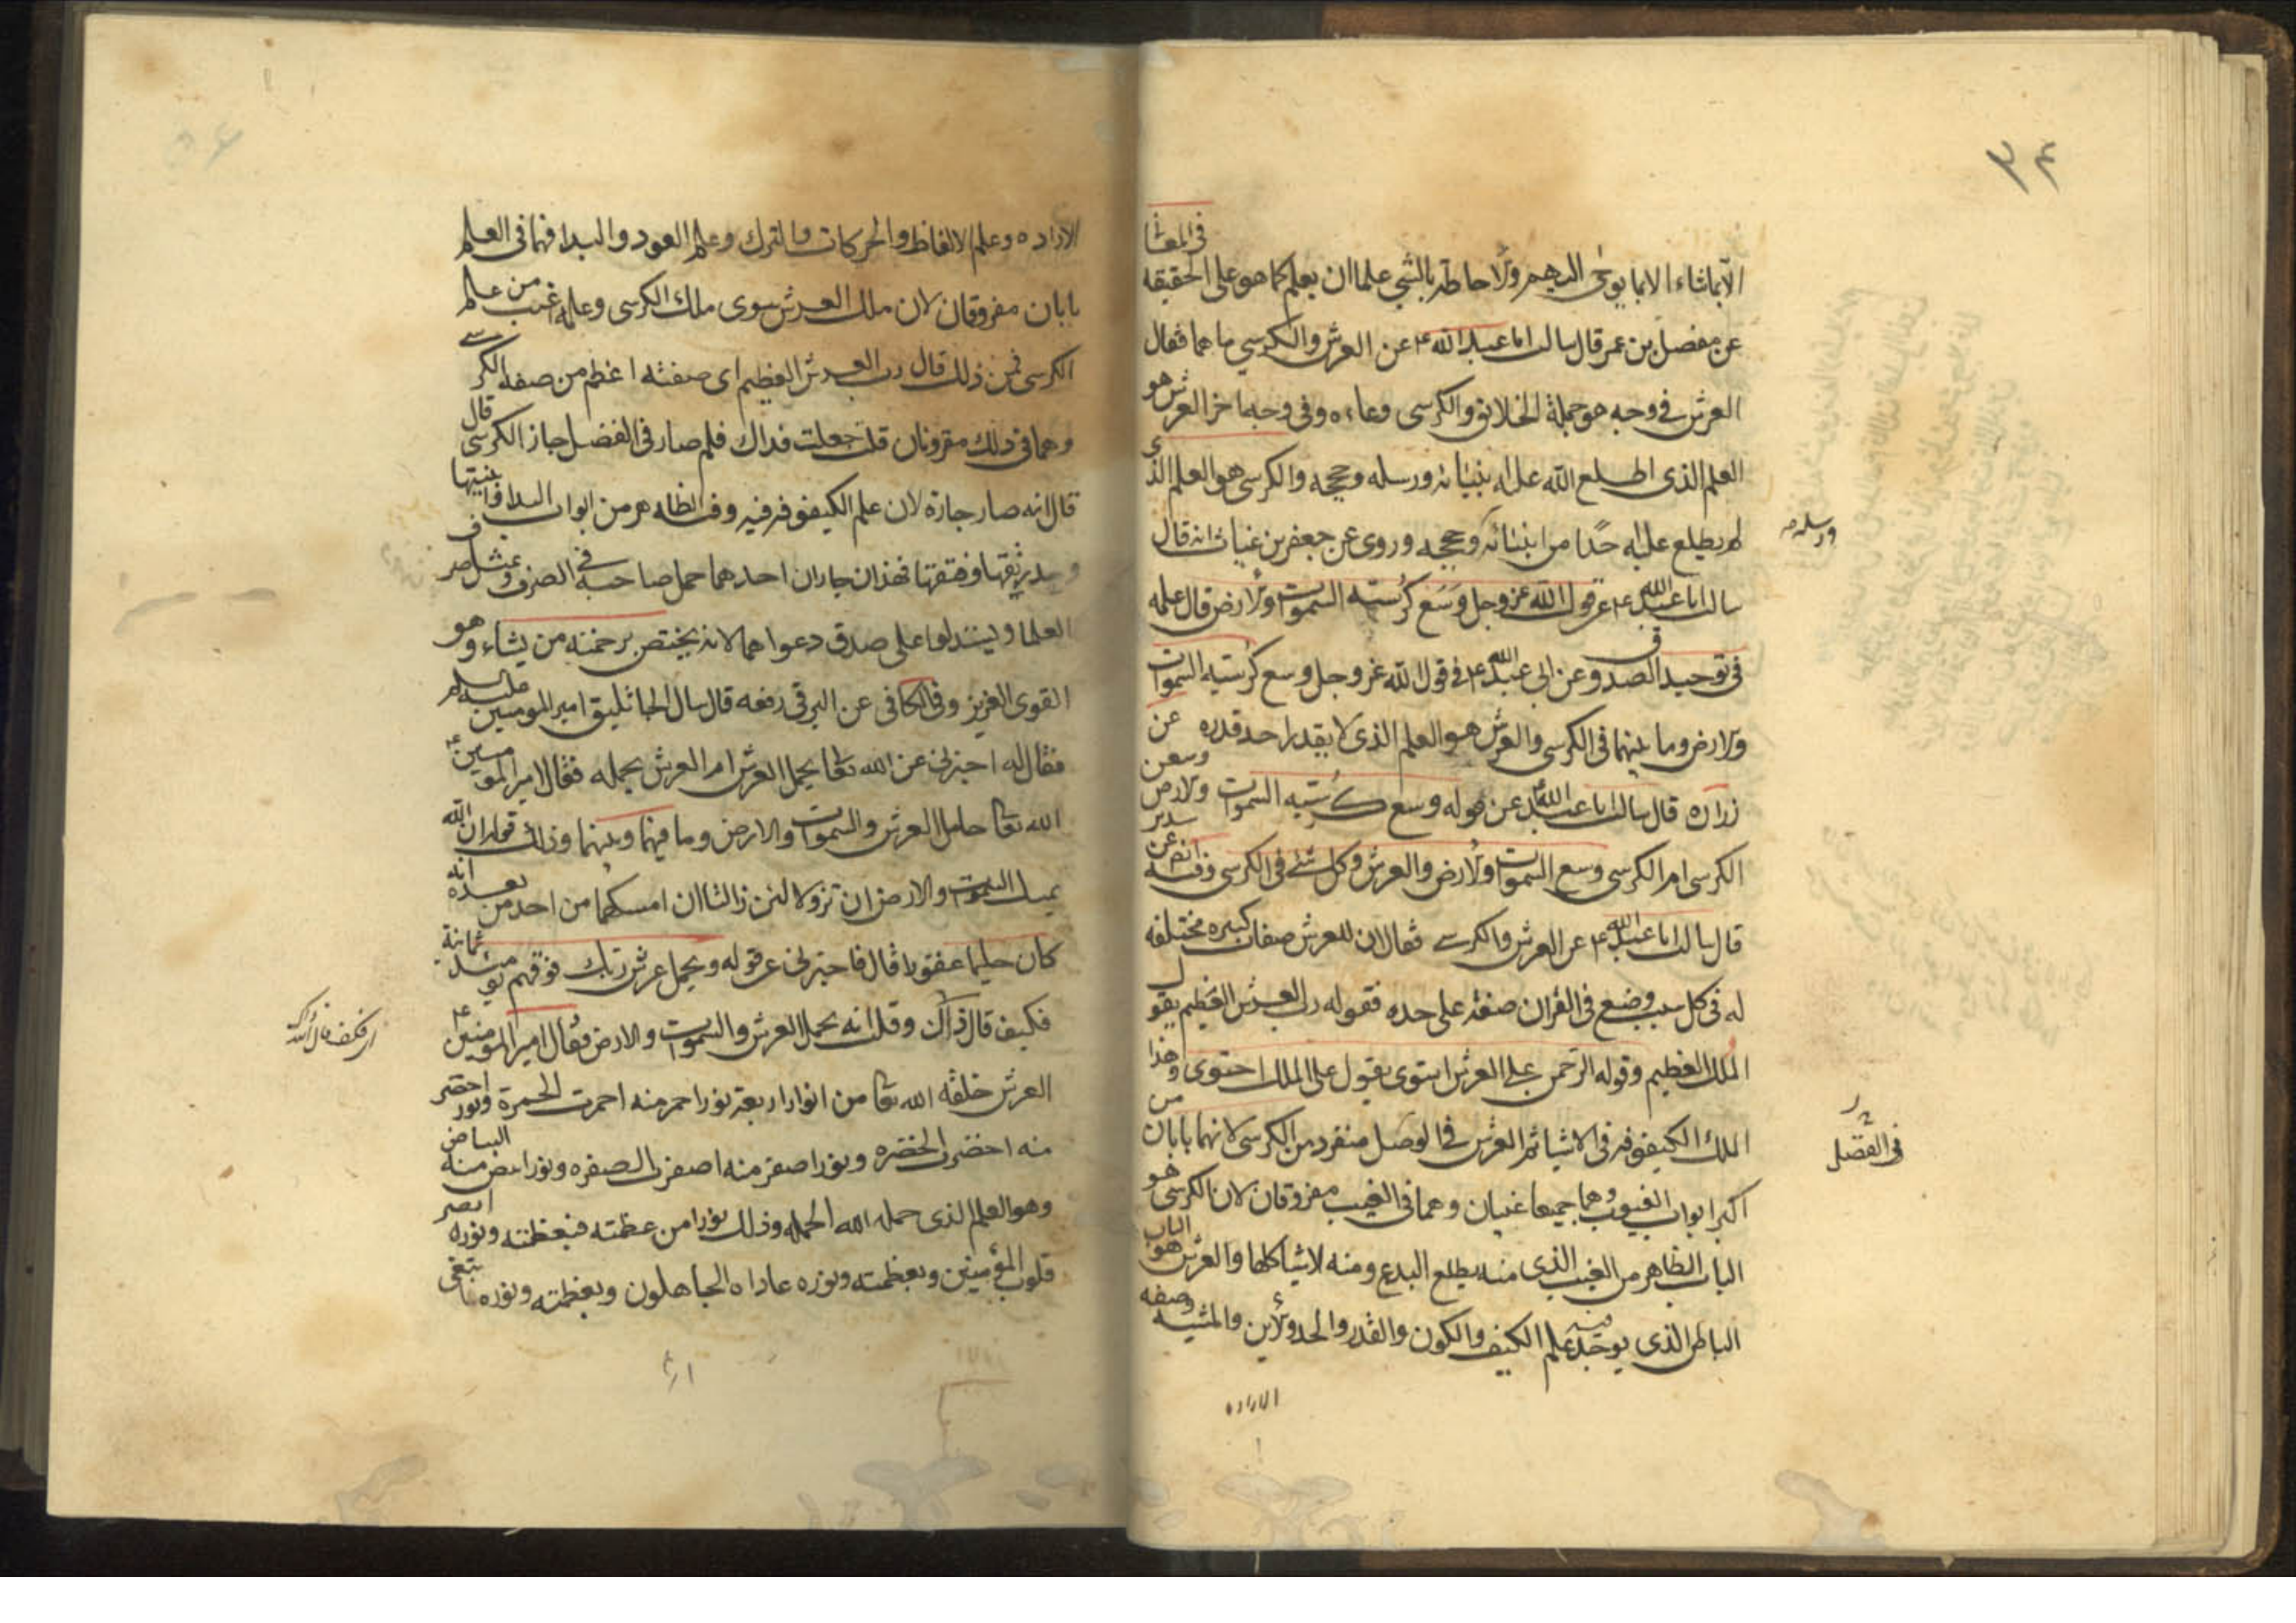 في المعا
الا بما شاء الا بما يوحى اليهم والاحاطة بالشي علما ان يعلم كما هو على الحقيقه
عن مفضل بن عمر قال سالت ابا عبد الله ع عن العرش والكرسي ما هما فقال
العرش في وجه هو جملة الخلايق والكرسى وعاءه وفى وجه اخر العرش هو
العلم الذى اطلع الله عليه انبيائه ورسله وحججه والكرسى هو العلم الذى
لم يطلع عليه احدا من انبيائه وحججه وروى عن حفص بن غياث انه قال
ورسله صح
سالت ابا عبد الله ع عن قول الله عز وجل وسع كرسيه السموات والارض قال علمه
فى توحيد الصدوق عن ابى عبد الله ع في قول الله عز وجل وسع كرسيه السموات
والارض وما بينهما فى الكرسى والعرش هو العلم الذى لا يقدر احد قدره وعن
زراره قال سالت ابا عبد الله ع عن قوله وسع كرسيه السموات والارض وسعن
الكرسى ام الكرسى وسع السموات والارض والعرش وكل شئ فى الكرسى وفيه عن سدير
قال سالت ابا عبد الله ع عن العرش والكرسي فقال ان للعرش صفات كثيره مختلفه
له فى كل سبب وضع فى القران صفة على حده فقوله رب العرش العظيم يقول
الملك العظيم وقوله الرحمن على العرش استوى يقول على الملك احتوى وهذا
الملك الكيفوفيه فى الاشيا ثم العرش في الوصل منفرد من الكرسى لانهما بابان من
فى الفضل
اكبر ابواب الغيوب وهما جميعا غيبان وهما فى الغيب مقرونان لان الكرسى هو
الباب الظاهر من الغيب الذى منه يطلع البدع ومنه الاشيا كلها والعرش هو الباب
الباطن الذى يوجد فيه علم الكيف والكون والقدر والحد والاين والمشيه وصفه
الاراده
الاراده وعلم الالفاظ والحركات والترك وعلم العود والبدا فهما فى العلم
بابان مقرونان لان ملك العرش سوى ملك الكرسى وعلمه اغيب من علم
الكرسى فمن ذلك قال رب العرش العظيم اى صفته اعظم من صفه الكرسي
وهما فى ذلك مقرونان قلت جعلت فداك فلم صار فى الفضل جاز الكرسى قال
قال انه صار جاره لان علم الكيفوفيه فيه وفيه الظاهر من ابواب البدا واينيتها
وحد رتقها وفتقها فهذان جاران احدهما حمل صاحبه في الصرف وبمثل صرف
العلما وليستدلوا على صدق دعواهما لانه يختص برحمته من يشاء وهو
القوى العزيز وفى الكافى عن البرقى رفعه قال سال الجاثليق امير المومنين عليه السلام
فقال له اخبرنى عن الله تعا يحمل العرش ام العرش يحمله فقال امير المومنين ع
الله تعا حامل العرش والسموات والارض وما فيهما وبينهما وذلك قوله ان الله
يمسك السموات والارض ان تزولا لئن زالتا ان امسكهما من احد من بعده انه
كان حليما غفورا قال فاخبرنى عن قوله ويحمل عرش ربك فوقهم يومئذ ثمانية
فكيف قال ذاك وقلت انه يحمل العرش والسموات والارض فقال امير المومنين ع
العرش خلقه الله تعا من انوار اربعة نور احمر منه احمرت الحمرة ونور اخضر
منه اخضرت الخضره ونور اصفر منه اصفرت الصفره ونور ابيض منه البياض
وهو العلم الذى حمله الله الحمله وذلك نور من عظمته فبعظمته ونوره ابصر
قلوب المؤمنين وبعظمته ونوره عاداه الجاهلون وبعظمته ونوره ابتغى